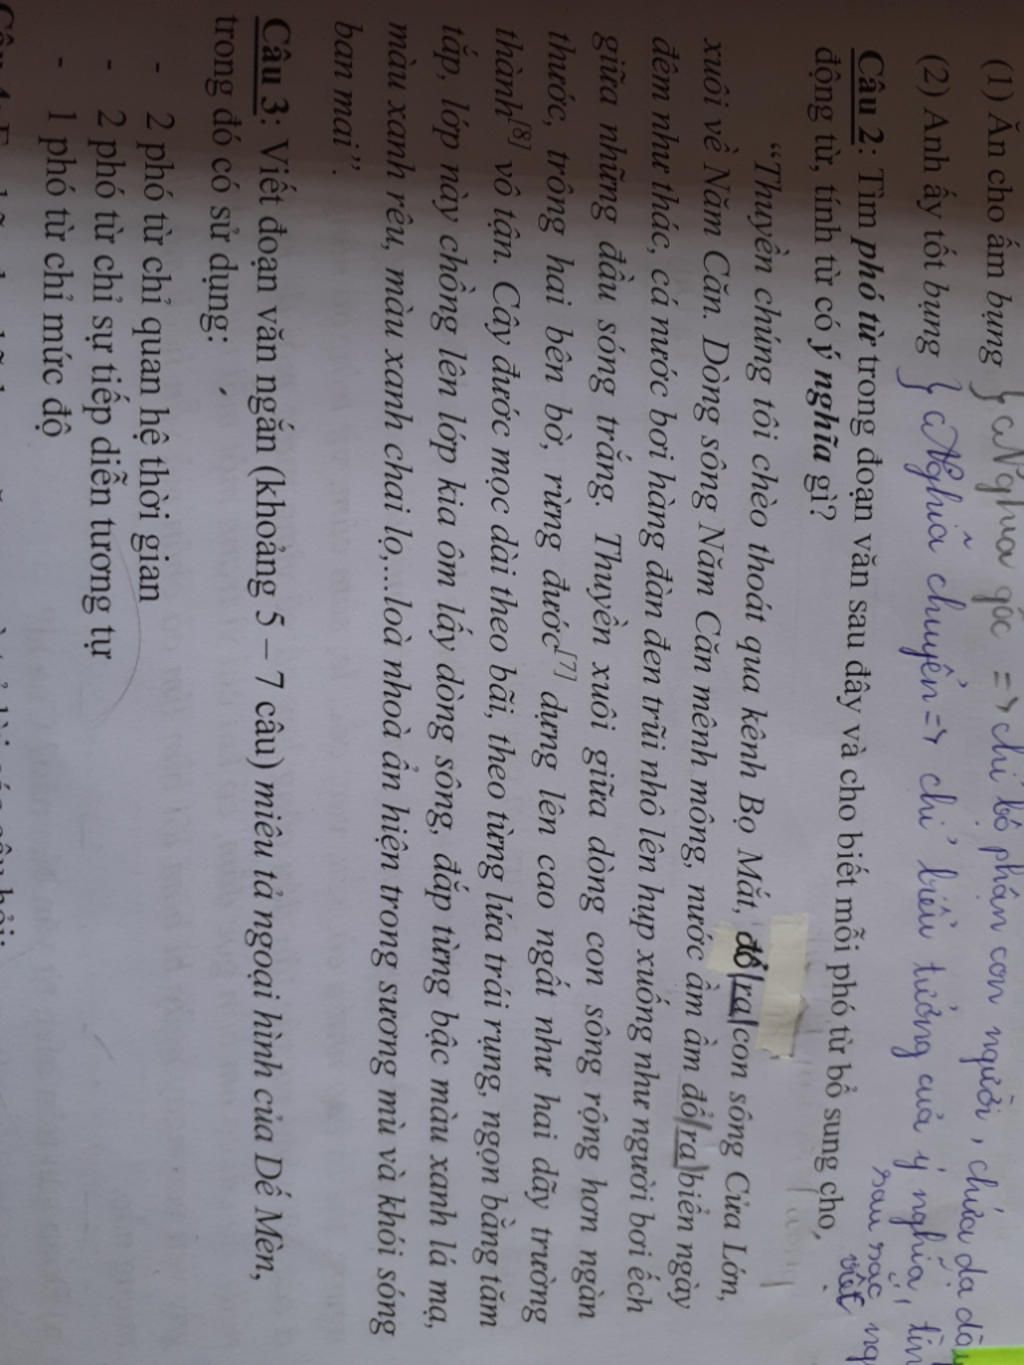 (1) Ăn cho ấm bụng } Nghĩa gốc => chỉ bộ phận con người, chứa dạ dày
(2) Anh ấy tốt bụng } Nghĩa chuyển => chỉ biểu tượng của ý nghĩa,
sâu sắc
việt
Câu 2: Tìm phó từ trong đoạn văn sau đây và cho biết mỗi phó từ bổ sung cho
động từ, tính từ có ý nghĩa gì?
“Thuyền chúng tôi chèo thoát qua kênh Bọ Mắt, đổ ra con sông Cửa Lớn,
xuôi về Năm Căn. Dòng sông Năm Căn mênh mông, nước ầm ầm đổ ra biển ngày
đêm như thác, cá nước bơi hàng đàn đen trũi nhô lên hụp xuống như người bơi ếch
giữa những đầu sóng trắng. Thuyền xuôi giữa dòng con sông rộng hơn ngàn
thước, trông hai bên bờ, rừng đước[7] dựng lên cao ngất như hai dãy trường
thành[8] vô tận. Cây đước mọc dài theo bãi, theo từng lứa trái rụng, ngọn bằng tăm
tắp, lớp này chồng lên lớp kia ôm lấy dòng sông, đắp từng bậc màu xanh lá mạ,
màu xanh rêu, màu xanh chai lọ,...loà nhoà ẩn hiện trong sương mù và khói sóng
ban mai”.
Câu 3: Viết đoạn văn ngắn (khoảng 5 – 7 câu) miêu tả ngoại hình của Dế Mèn,
trong đó có sử dụng:
- 2 phó từ chỉ quan hệ thời gian
- 2 phó từ chỉ sự tiếp diễn tương tự
- 1 phó từ chỉ mức độ